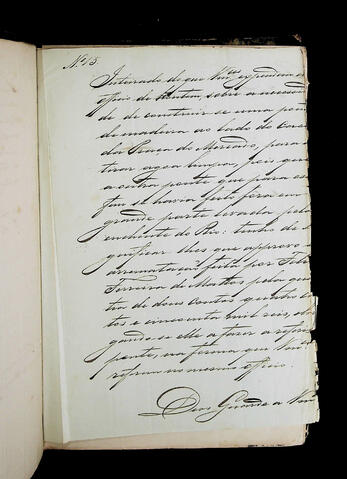 Nº 15
Inteirado do que Vmces expenderam
officio de hontem, sobre a necessid
de de construir-se uma pon
de madeira ao lado do Caes
da Praça do Mercado, para
tirar agoa limpa, pois que
a outra ponte que para es
fim se havia feito fora em
grande parte levada pela
enchente do Rio: tenho de s
gnificar-lhes que approvo a
arrematação feita por Feli
Ferreira de Mattos pela qua
tia de dous contos quatrocen
tos e cincoenta mil reis, obri
gando-se elle a fazer a refer
ponte, na forma que Vmces
referem no mesmo officio.
Deos Guarde a Vm